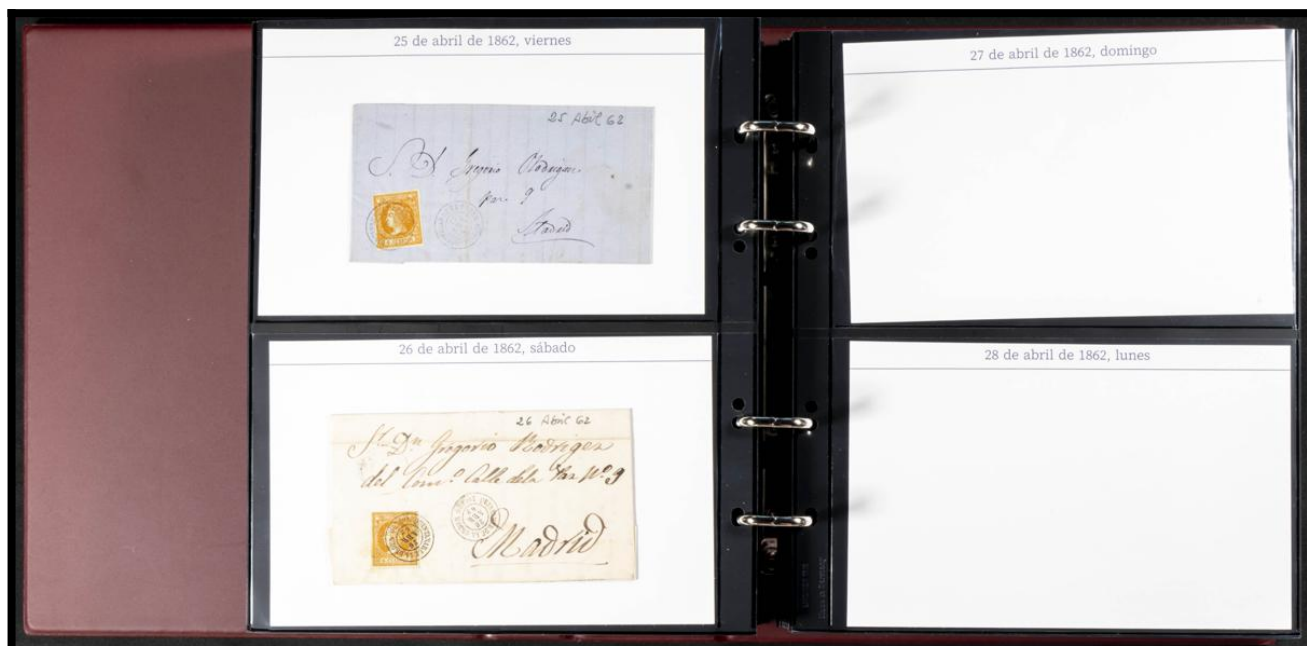 25 de abril de 1862, viernes
25 Abil 62
S. D Gregorio Rodriguez
Paz 9
Madrid
26 de abril de 1862, sábado
26 Abril 62
Sr. Dn. Gregorio Rodrigez
del Comº Calle dela Paz Nº 9
Madrid
27 de abril de 1862, domingo
28 de abril de 1862, lunes